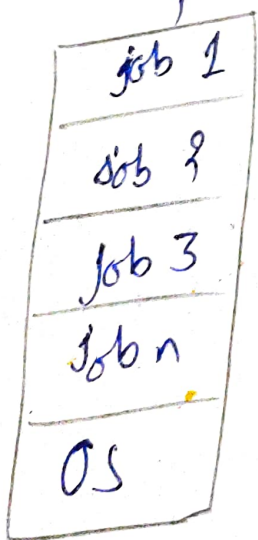 job 1
job 2
job 3
Job n
OS